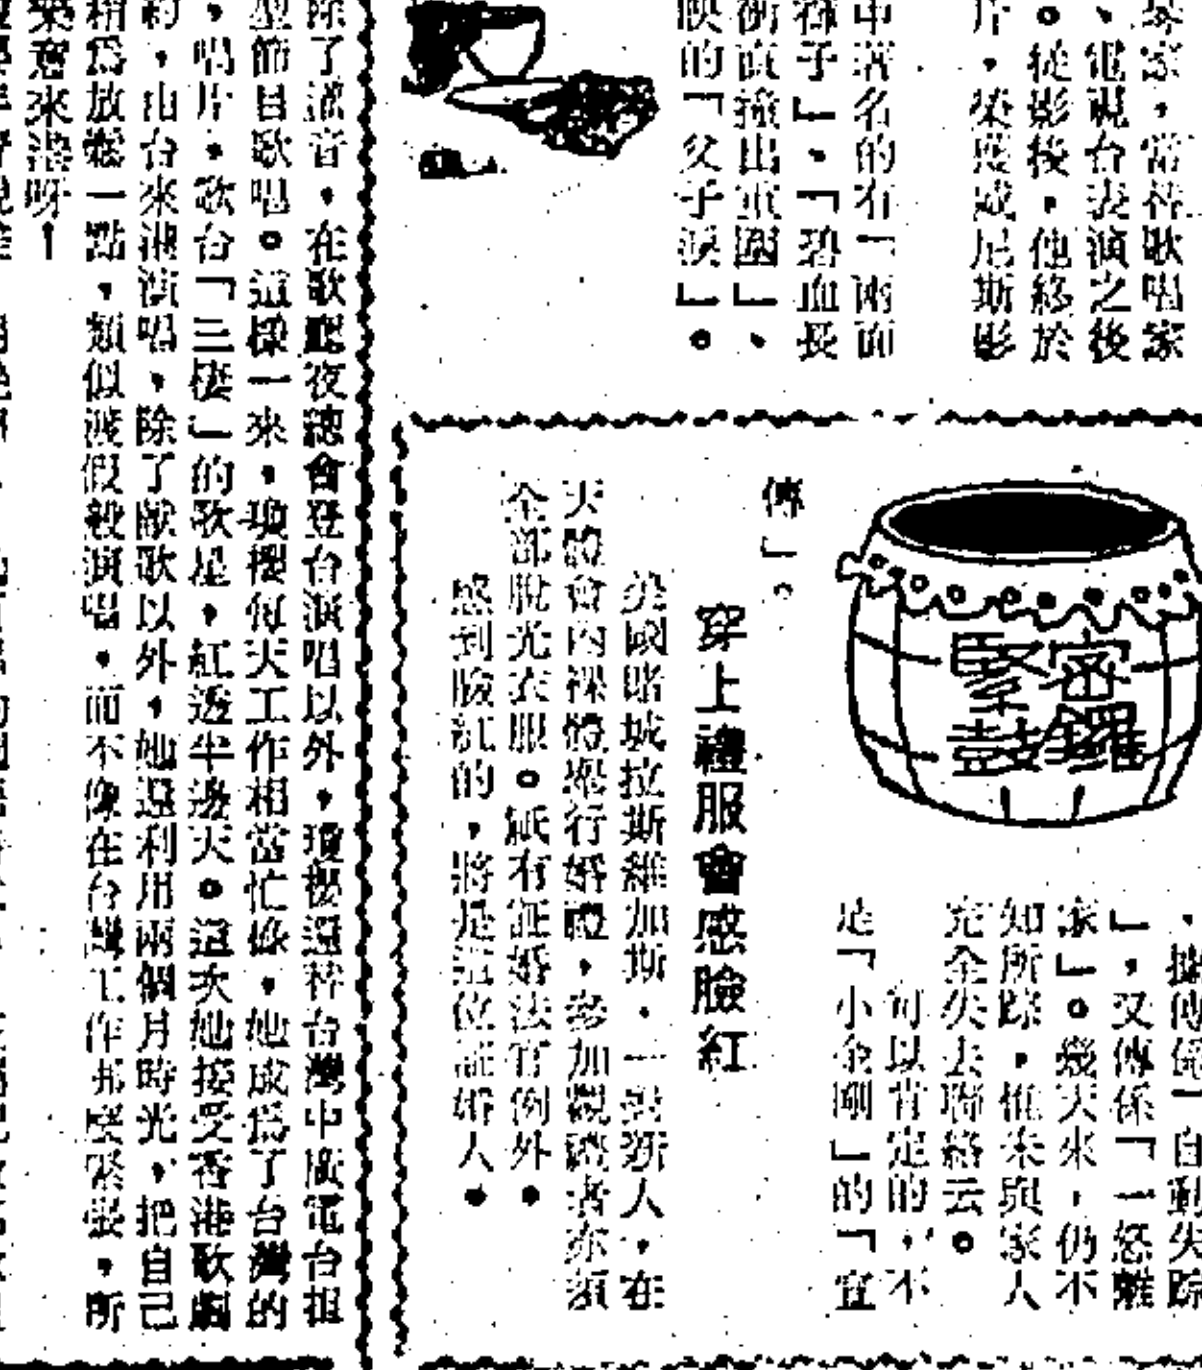 琴家，常替歌唱家
、電視台表演之後
。從影後，他終於
片，榮獲威尼斯影
中著名的有「兩面
褲子」、「碧血長
衝直撞出重圍」、
映的「父子淚」。
緊密
鼓鑼
，據傳係「自動失踪
」，又傳係「一怒離
家」。幾天來，仍不
知所踪，惟未與家人
完全失去聯絡云。
可以肯定的，不
是「小金剛」的「宣
傳」。
穿上禮服會感臉紅
美國賭城拉斯維加斯，一對新人，在
天體會內裸體舉行婚禮，參加觀禮者亦須
全部脫光衣服。祇有証婚法官例外。
感到臉紅的，將是這位証婚人。
除了灌音，在歌廳夜總會登台演唱以外，瓊櫻還替台灣中廣電台担
型節目歌唱。這樣一來，瓊櫻每天工作相當忙碌，她成爲了台灣的
，唱片，歌台「三棲」的歌星，紅透半邊天。這次她接受香港歌劇
約，由台來港演唱，除了獻歌以外，她還利用兩個月時光，把自己
稍爲放鬆一點，類似渡假般演唱，而不像在台灣工作那麼緊張，所
樂意來港呀！